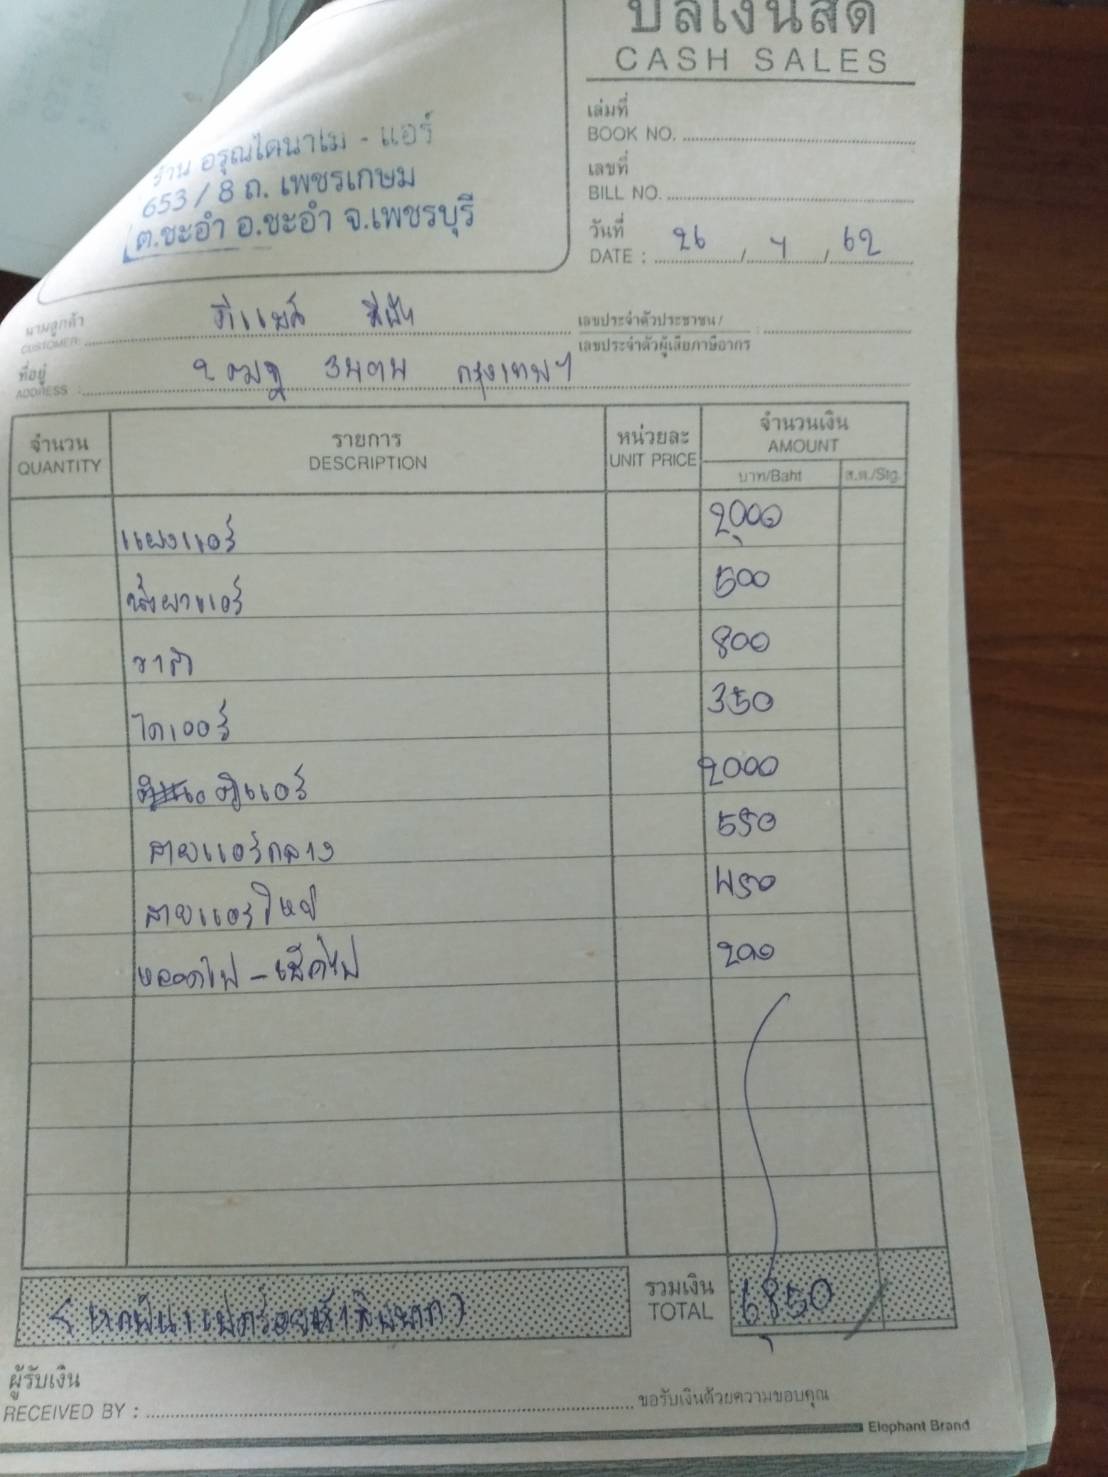 บิลเงินสด
CASH SALES
เล่มที่
BOOK NO.
เลขที่
BILL NO.
วันที่
DATE : 26 / 4 / 62
ร้าน อรุณไดนาโม - แอร์
653 / 8 ถ. เพชรเกษม
ต.ชะอำ อ.ชะอำ จ.เพชรบุรี
นามลูกค้า
CUSTOMER:
เลขประจำตัวประชาชน /
เลขประจำตัวผู้เสียภาษีอากร
ที่อยู่
ADDRESS : กรุงเทพฯ
จำนวน
QUANTITY
รายการ
DESCRIPTION
หน่วยละ
UNIT PRICE
จำนวนเงิน
AMOUNT
บาท/Baht
ส.ต./Stg.
แผงแอร์ 2000
น้ำยาแอร์ 500
วาล์ว 800
ไดเออร์ 350
ตู้แอร์ 2000
สายแอร์กลาง 550
สายแอร์ใหญ่ 450
หลอดไฟ - เช็คไฟ 200
(หกพันแปดร้อยห้าสิบบาท)
รวมเงิน
TOTAL 6850
ผู้รับเงิน
RECEIVED BY :
ขอรับเงินด้วยความขอบคุณ
Elephant Brand